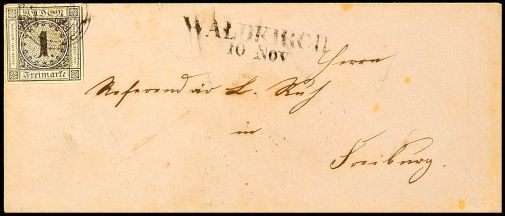 1
Freimarke
WALDKIRCH
10 Nov
Herrn
Referendär L. Ruf
in
Freiburg.